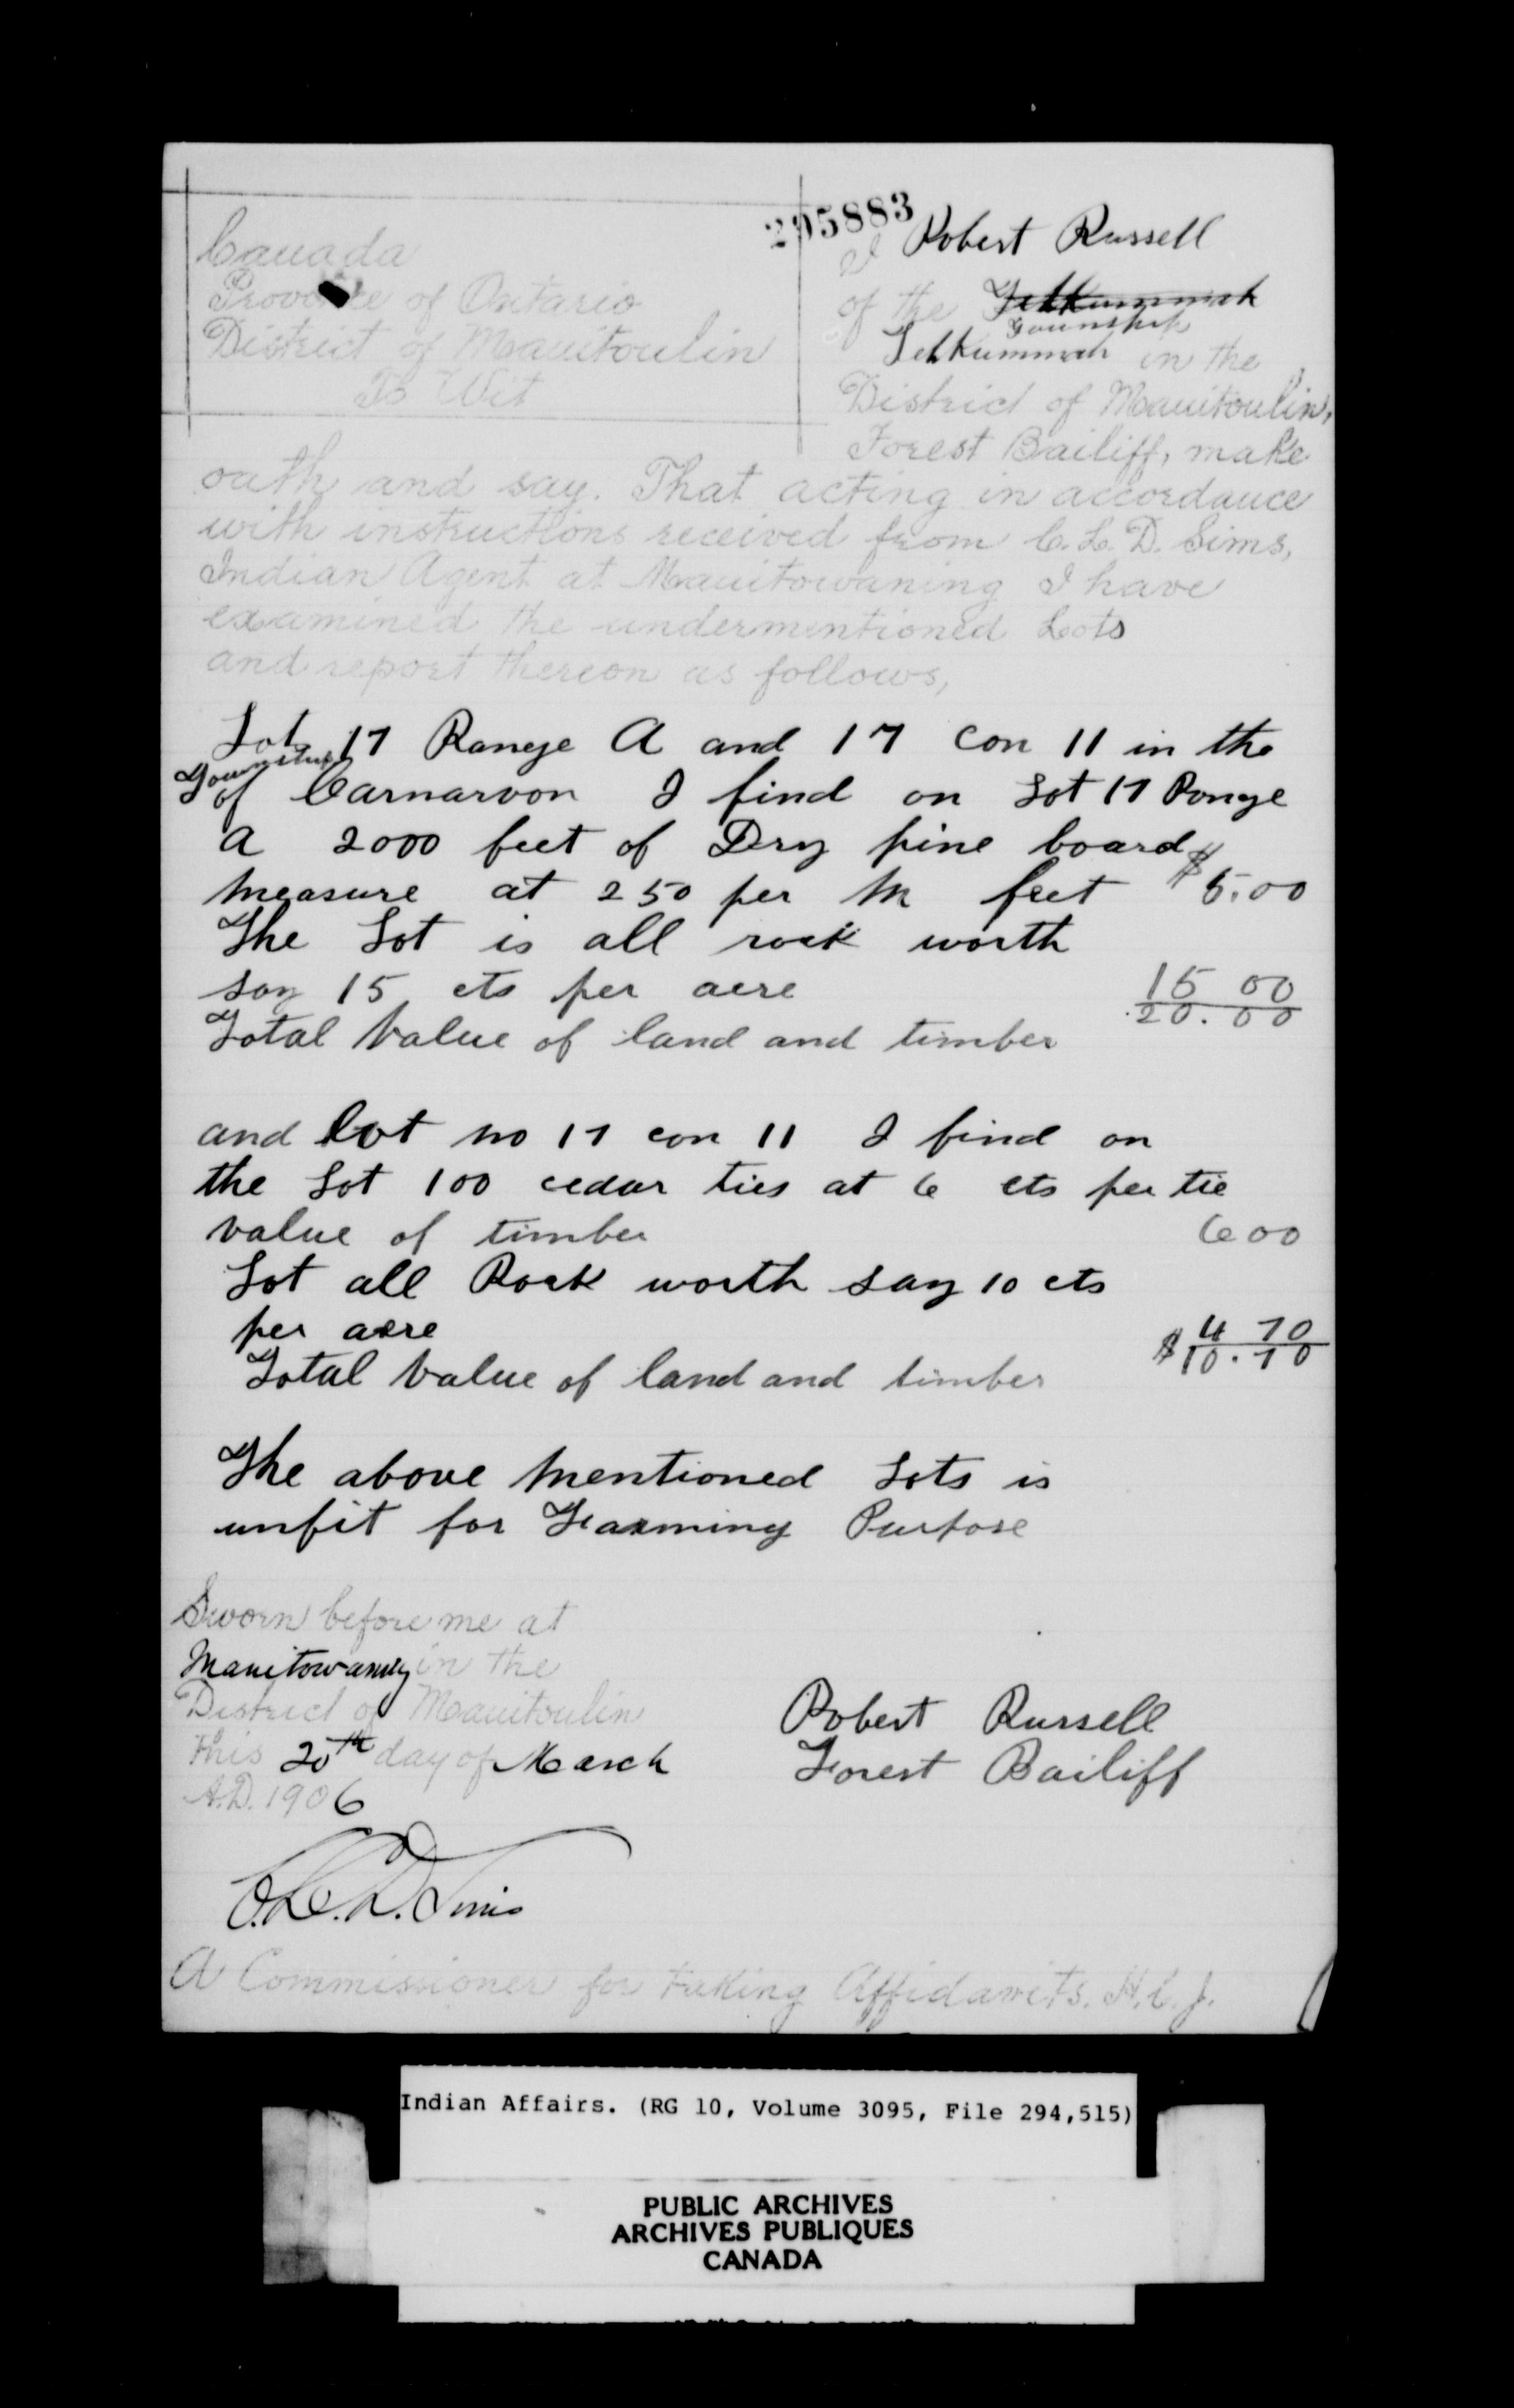 295883
Canada
Province of Ontario
District of Manitoulin
To Wit
I Robert Russell
of the Tehkummah
Township
Tehkummah in the
District of Manitoulin,
Forest Bailiff, make
oath and say. That acting in accordance
with instructions received from C. L. D. Sims,
Indian Agent at Manitowaning I have
examined the undermentioned Lots
and report thereon as follows,
Lot 17 Range A and 17 Con 11 in the
Township
of Carnarvon I find on Lot 17 Range
A 2000 feet of Dry pine board
measure at 250 per M feet $5.00
The Lot is all rock worth
say 15 cts per acre 15 00
Total Value of land and timber 20.00
and Lot no 17 con 11 I find on
the Lot 100 cedar ties at 6 cts per tie
value of timber 6 00
Lot all Rock worth say 10 cts
per acre 4 70
Total Value of land and timber $10.70
The above mentioned Lots is
unfit for Farming Purpose
Sworn before me at
Manitowaning in the
District of Manitoulin
this 20th day of March
A.D. 1906
Robert Russell
Forest Bailiff
C.L.D. Sims
A Commissioner for taking Affidavits. H.C.J.
Indian Affairs. (RG 10, Volume 3095, File 294,515)
PUBLIC ARCHIVES
ARCHIVES PUBLIQUES
CANADA